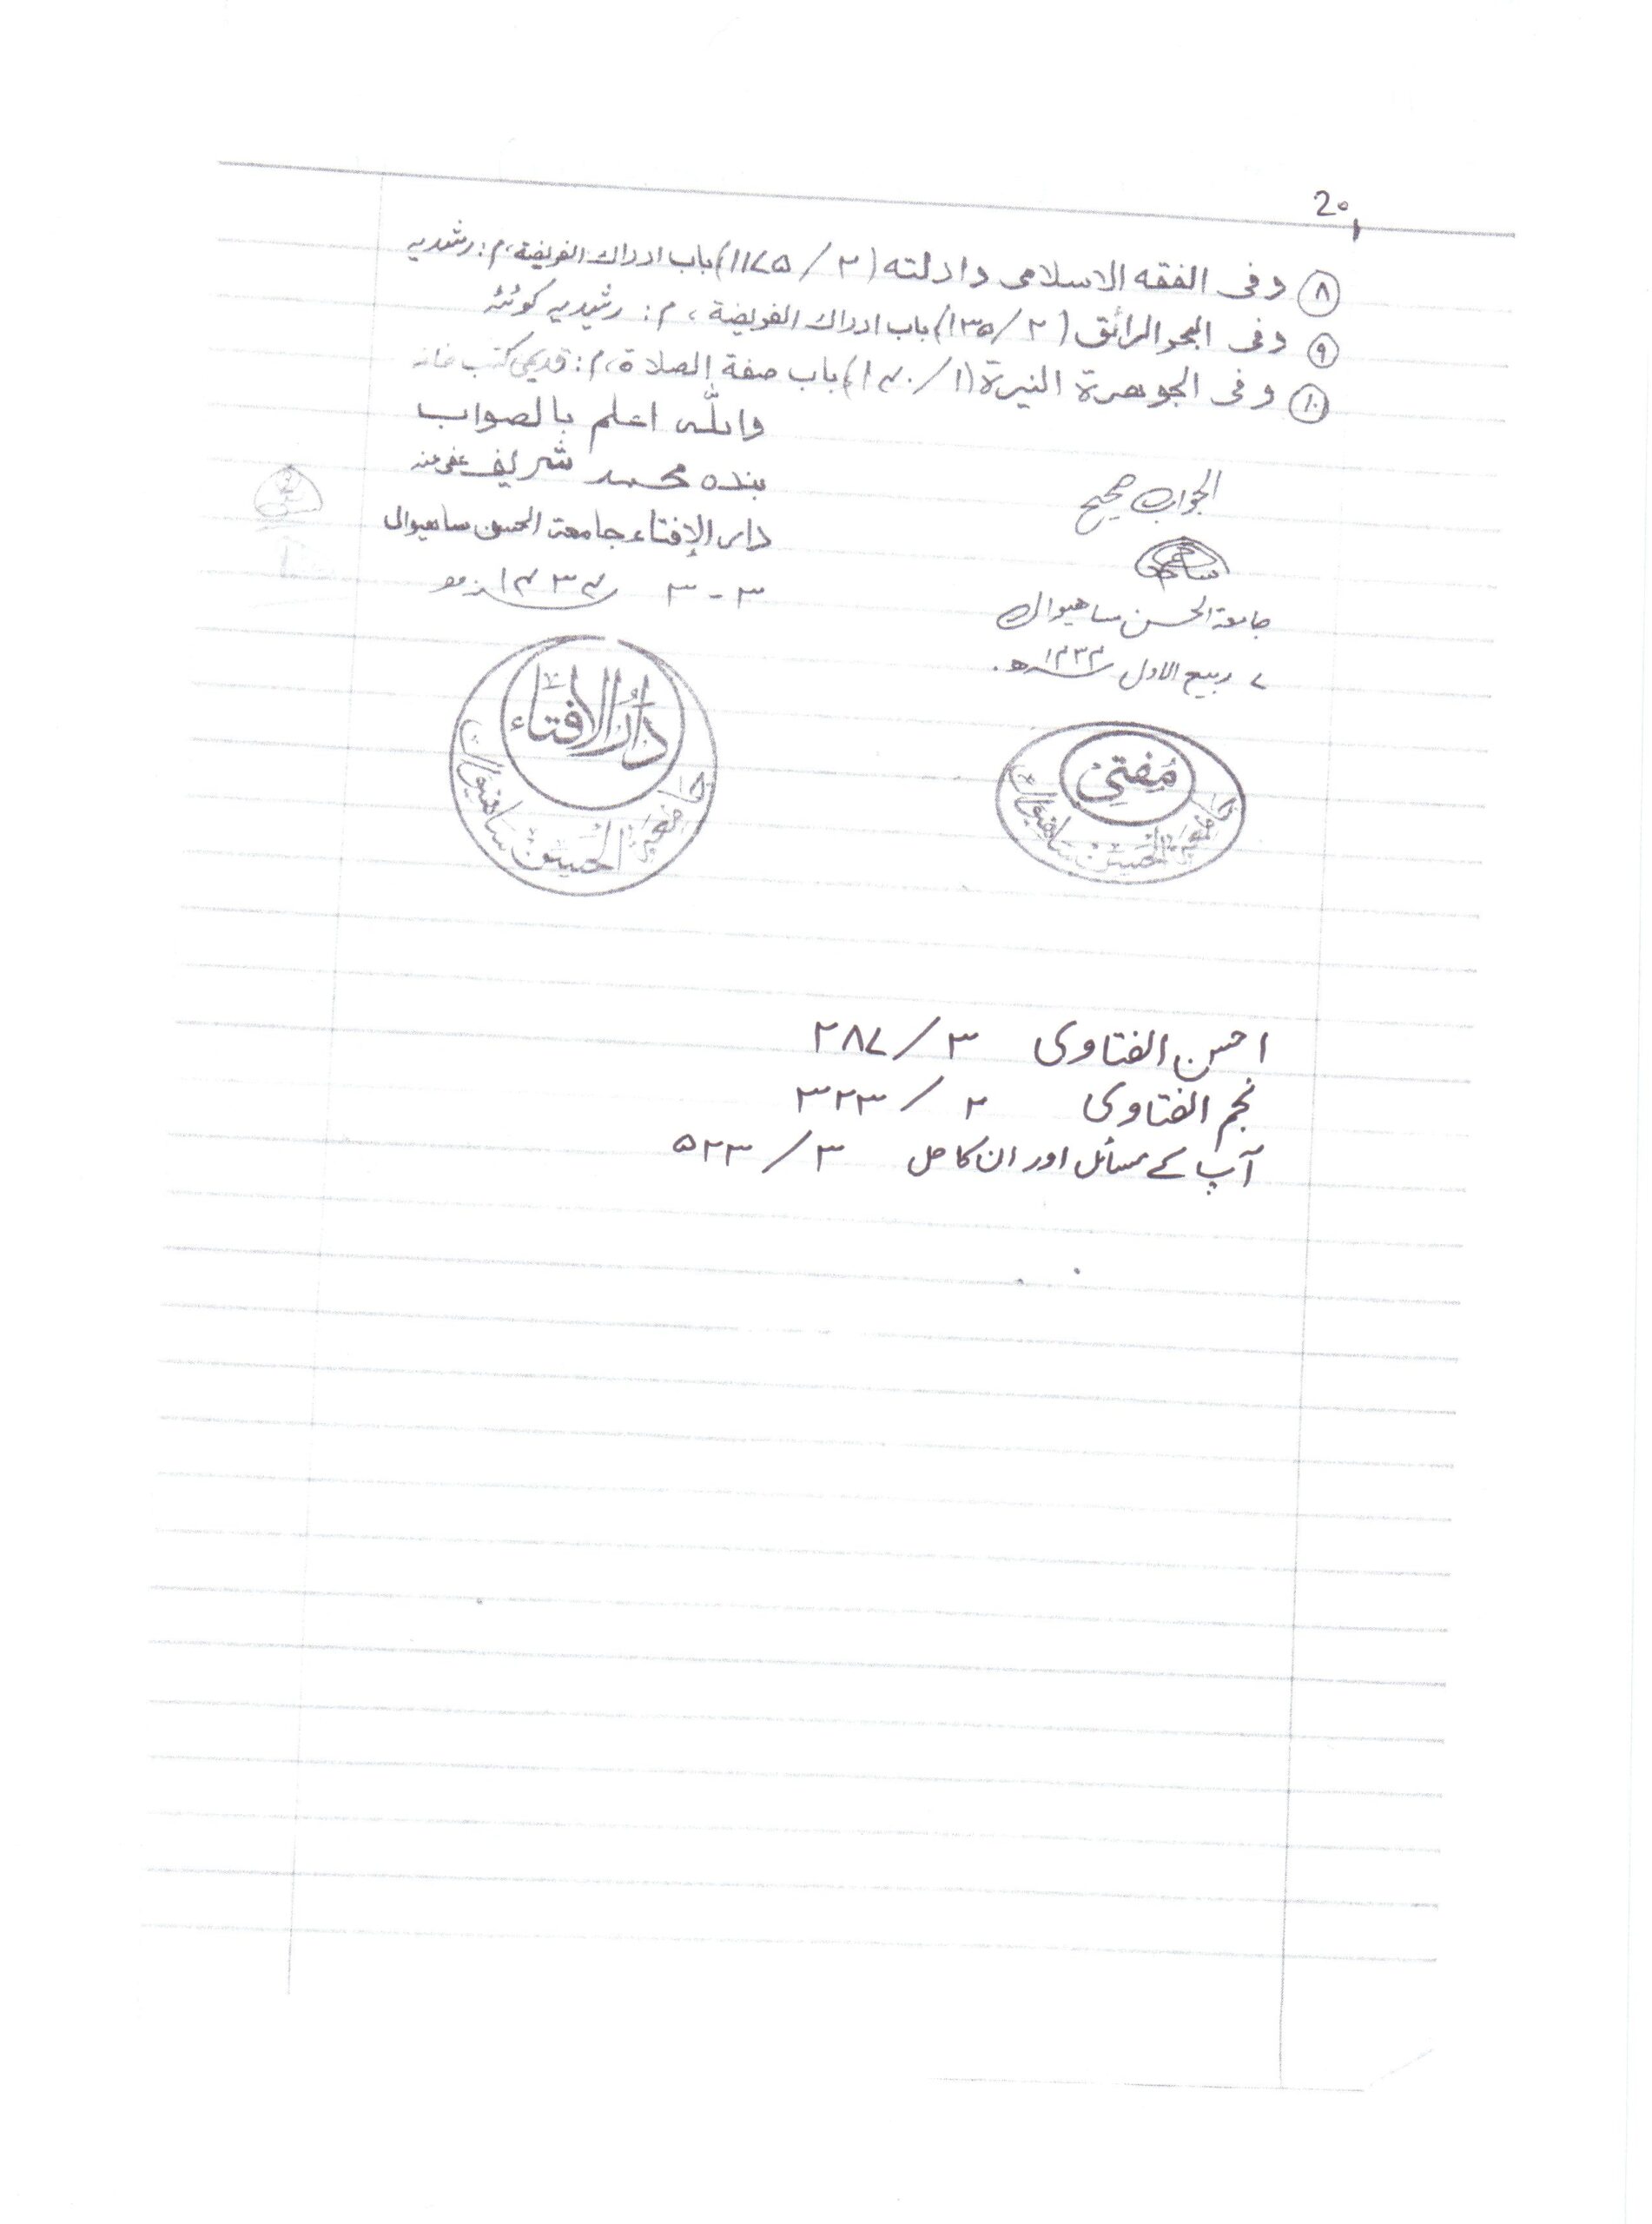 20
⑧ وفی الفقه الاسلامی وادلته (۲/۱۱۷۵) باب ادراك الفریضة، م: رشیدیه
⑨ وفی البحر الرائق (۲/۱۳۵) باب ادراك الفریضة، م: رشیدیه کوئٹہ
⑩ وفی الجوهرة النیرة (۱/۱۴۰) باب صفة الصلاة، م: قدیمی کتب خانہ
واللّٰه اعلم بالصواب
بندہ محمد شریف عفی عنہ
دار الإفتاء جامعة الحسن ساهیوال
۳ - ۳ ۱۴۳۴
الجواب صحیح
جامعة الحسن ساهیوال
۷ ربیع الاول ۱۴۳۴ھ
دَارُ الْاِفْتَاء
جامعة الحسن ساهیوال
مُفتِی
جامعة الحسن ساهیوال
احسن الفتاوی ۳/۲۸۷
نجم الفتاوی ۲/۳۲۳
آپ کے مسائل اور ان کا حل ۳/۵۲۳